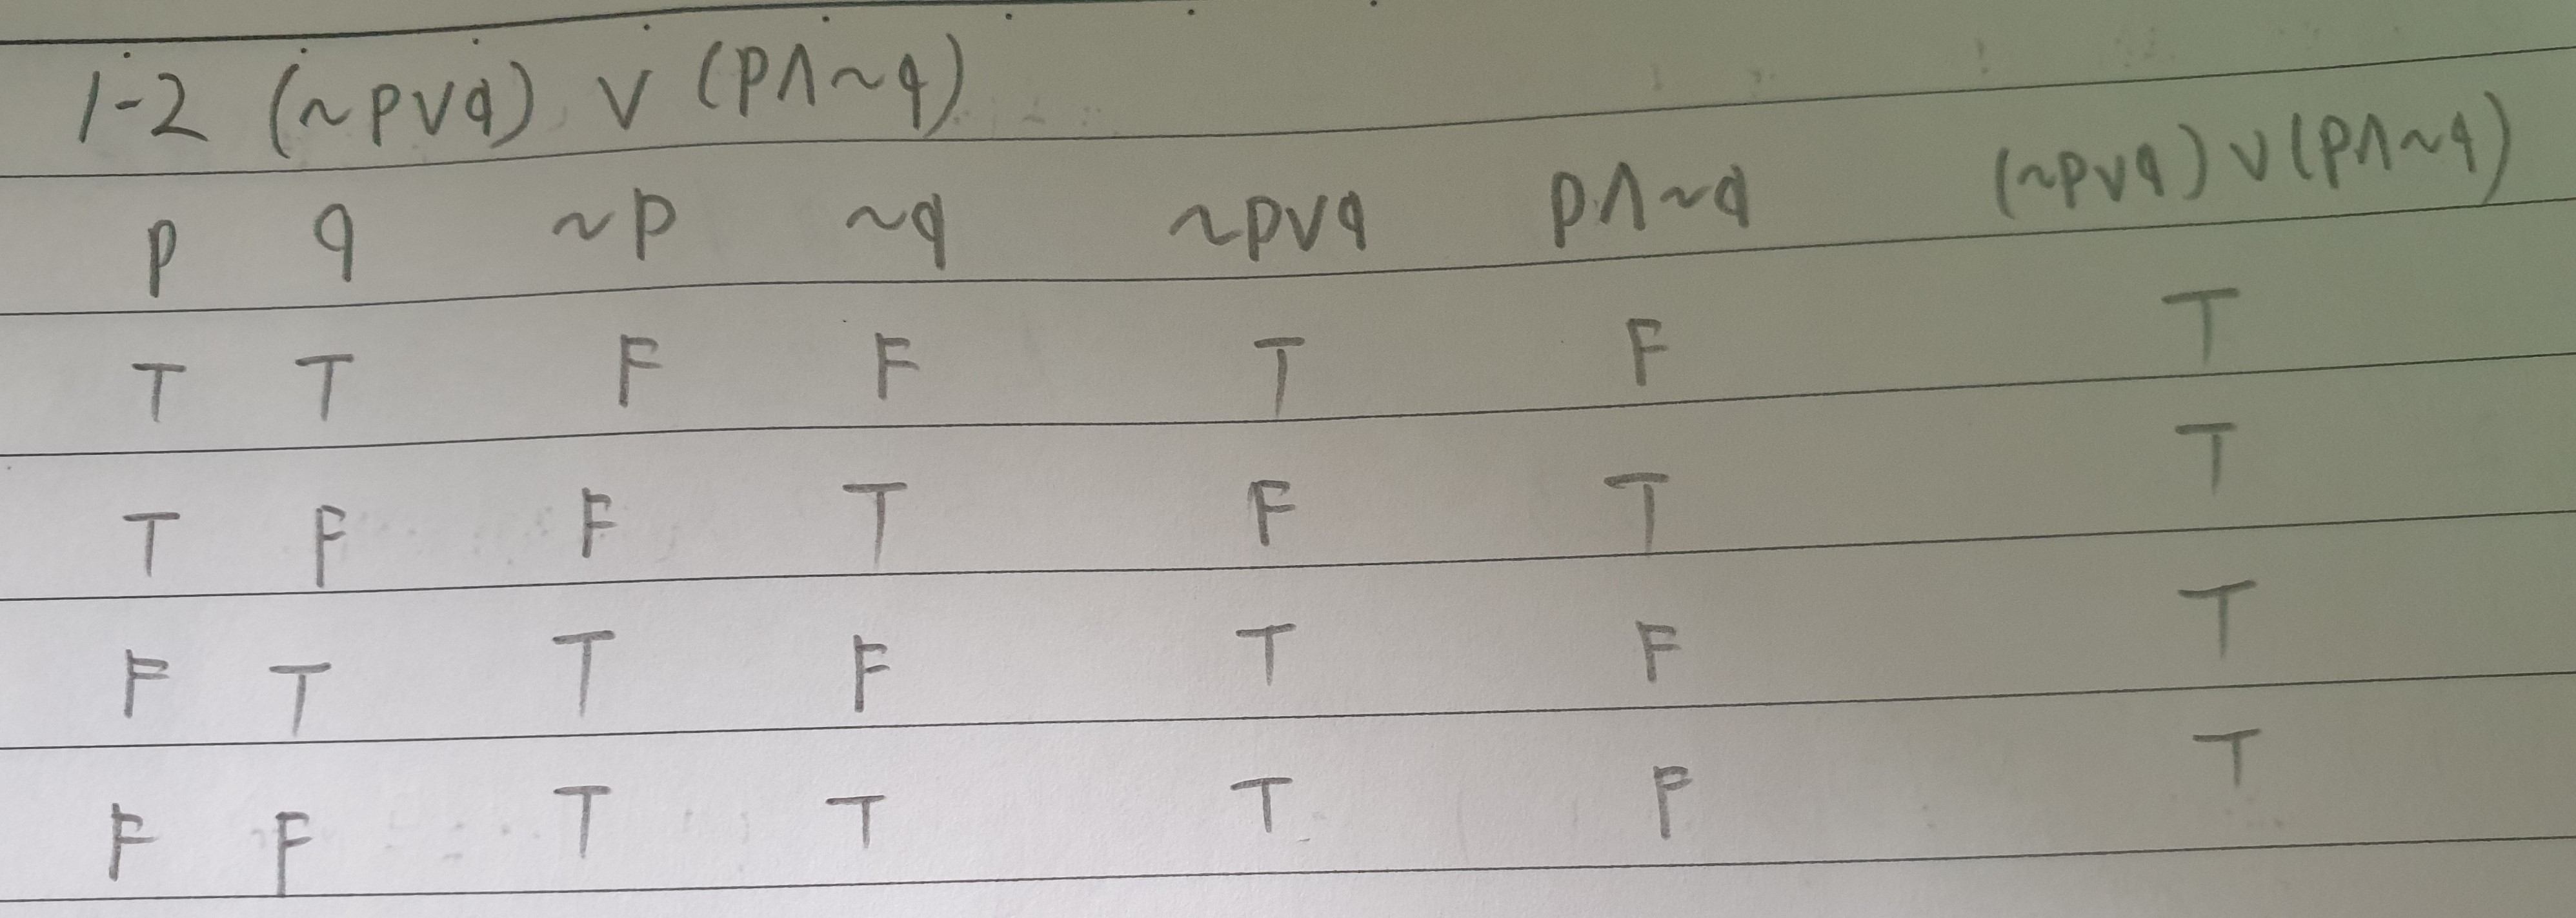 1-2 (~p∨q) ∨ (p∧~q)
p q ~p ~q ~p∨q p∧~q (~p∨q)∨(p∧~q)
T T F F T F T
T F F T F T T
F T T F T F T
F F T T T F T